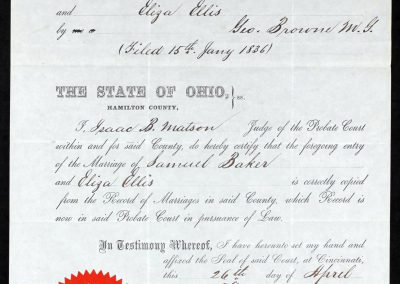 and Eliza Ellis
by Geo. Browne M. G.
(Filed 15th Jany 1836)
THE STATE OF OHIO, } ss.
HAMILTON COUNTY,
I, Isaac B. Matson Judge of the Probate Court
within and for said County, do hereby certify that the foregoing entry
of the Marriage of Samuel Baker
and Eliza Ellis is correctly copied
from the Record of Marriages in said County, which Record is
now in said Probate Court in pursuance of Law.
In Testimony Whereof, I have hereunto set my hand and
affixed the Seal of said Court, at Cincinnati,
this 26th day of April